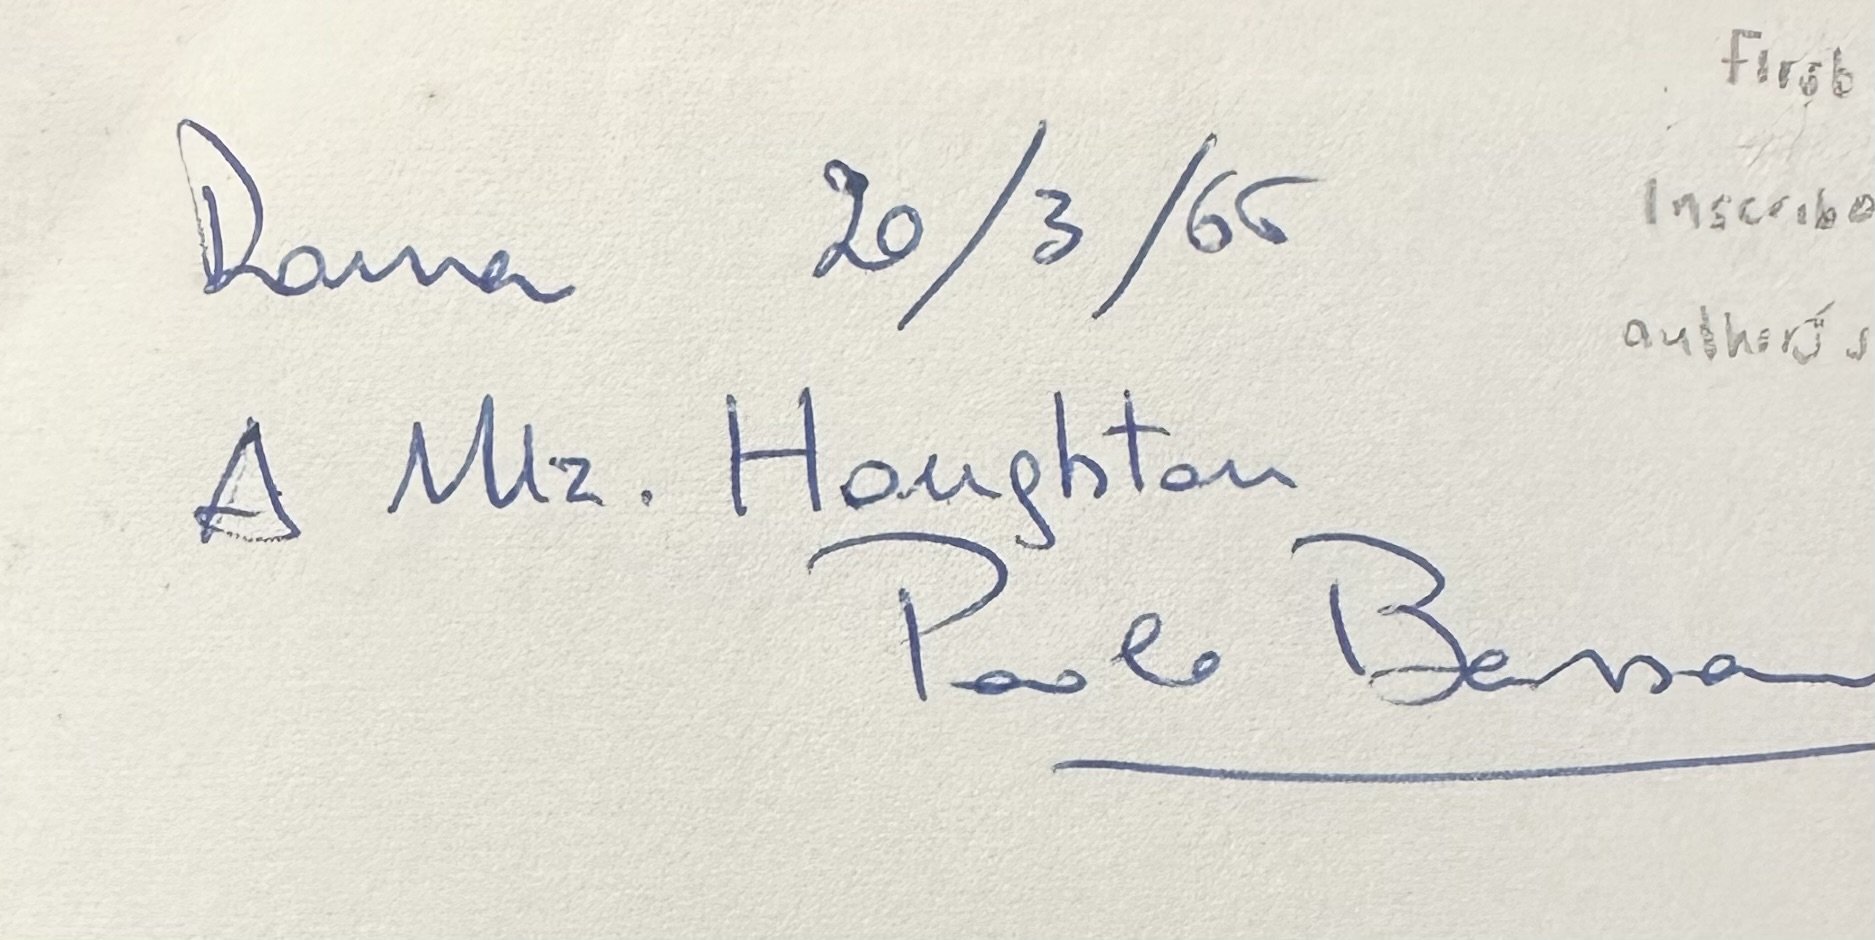 Roma 20/3/66
First
Inscribe
author's s
A Mr. Houghton
Paolo